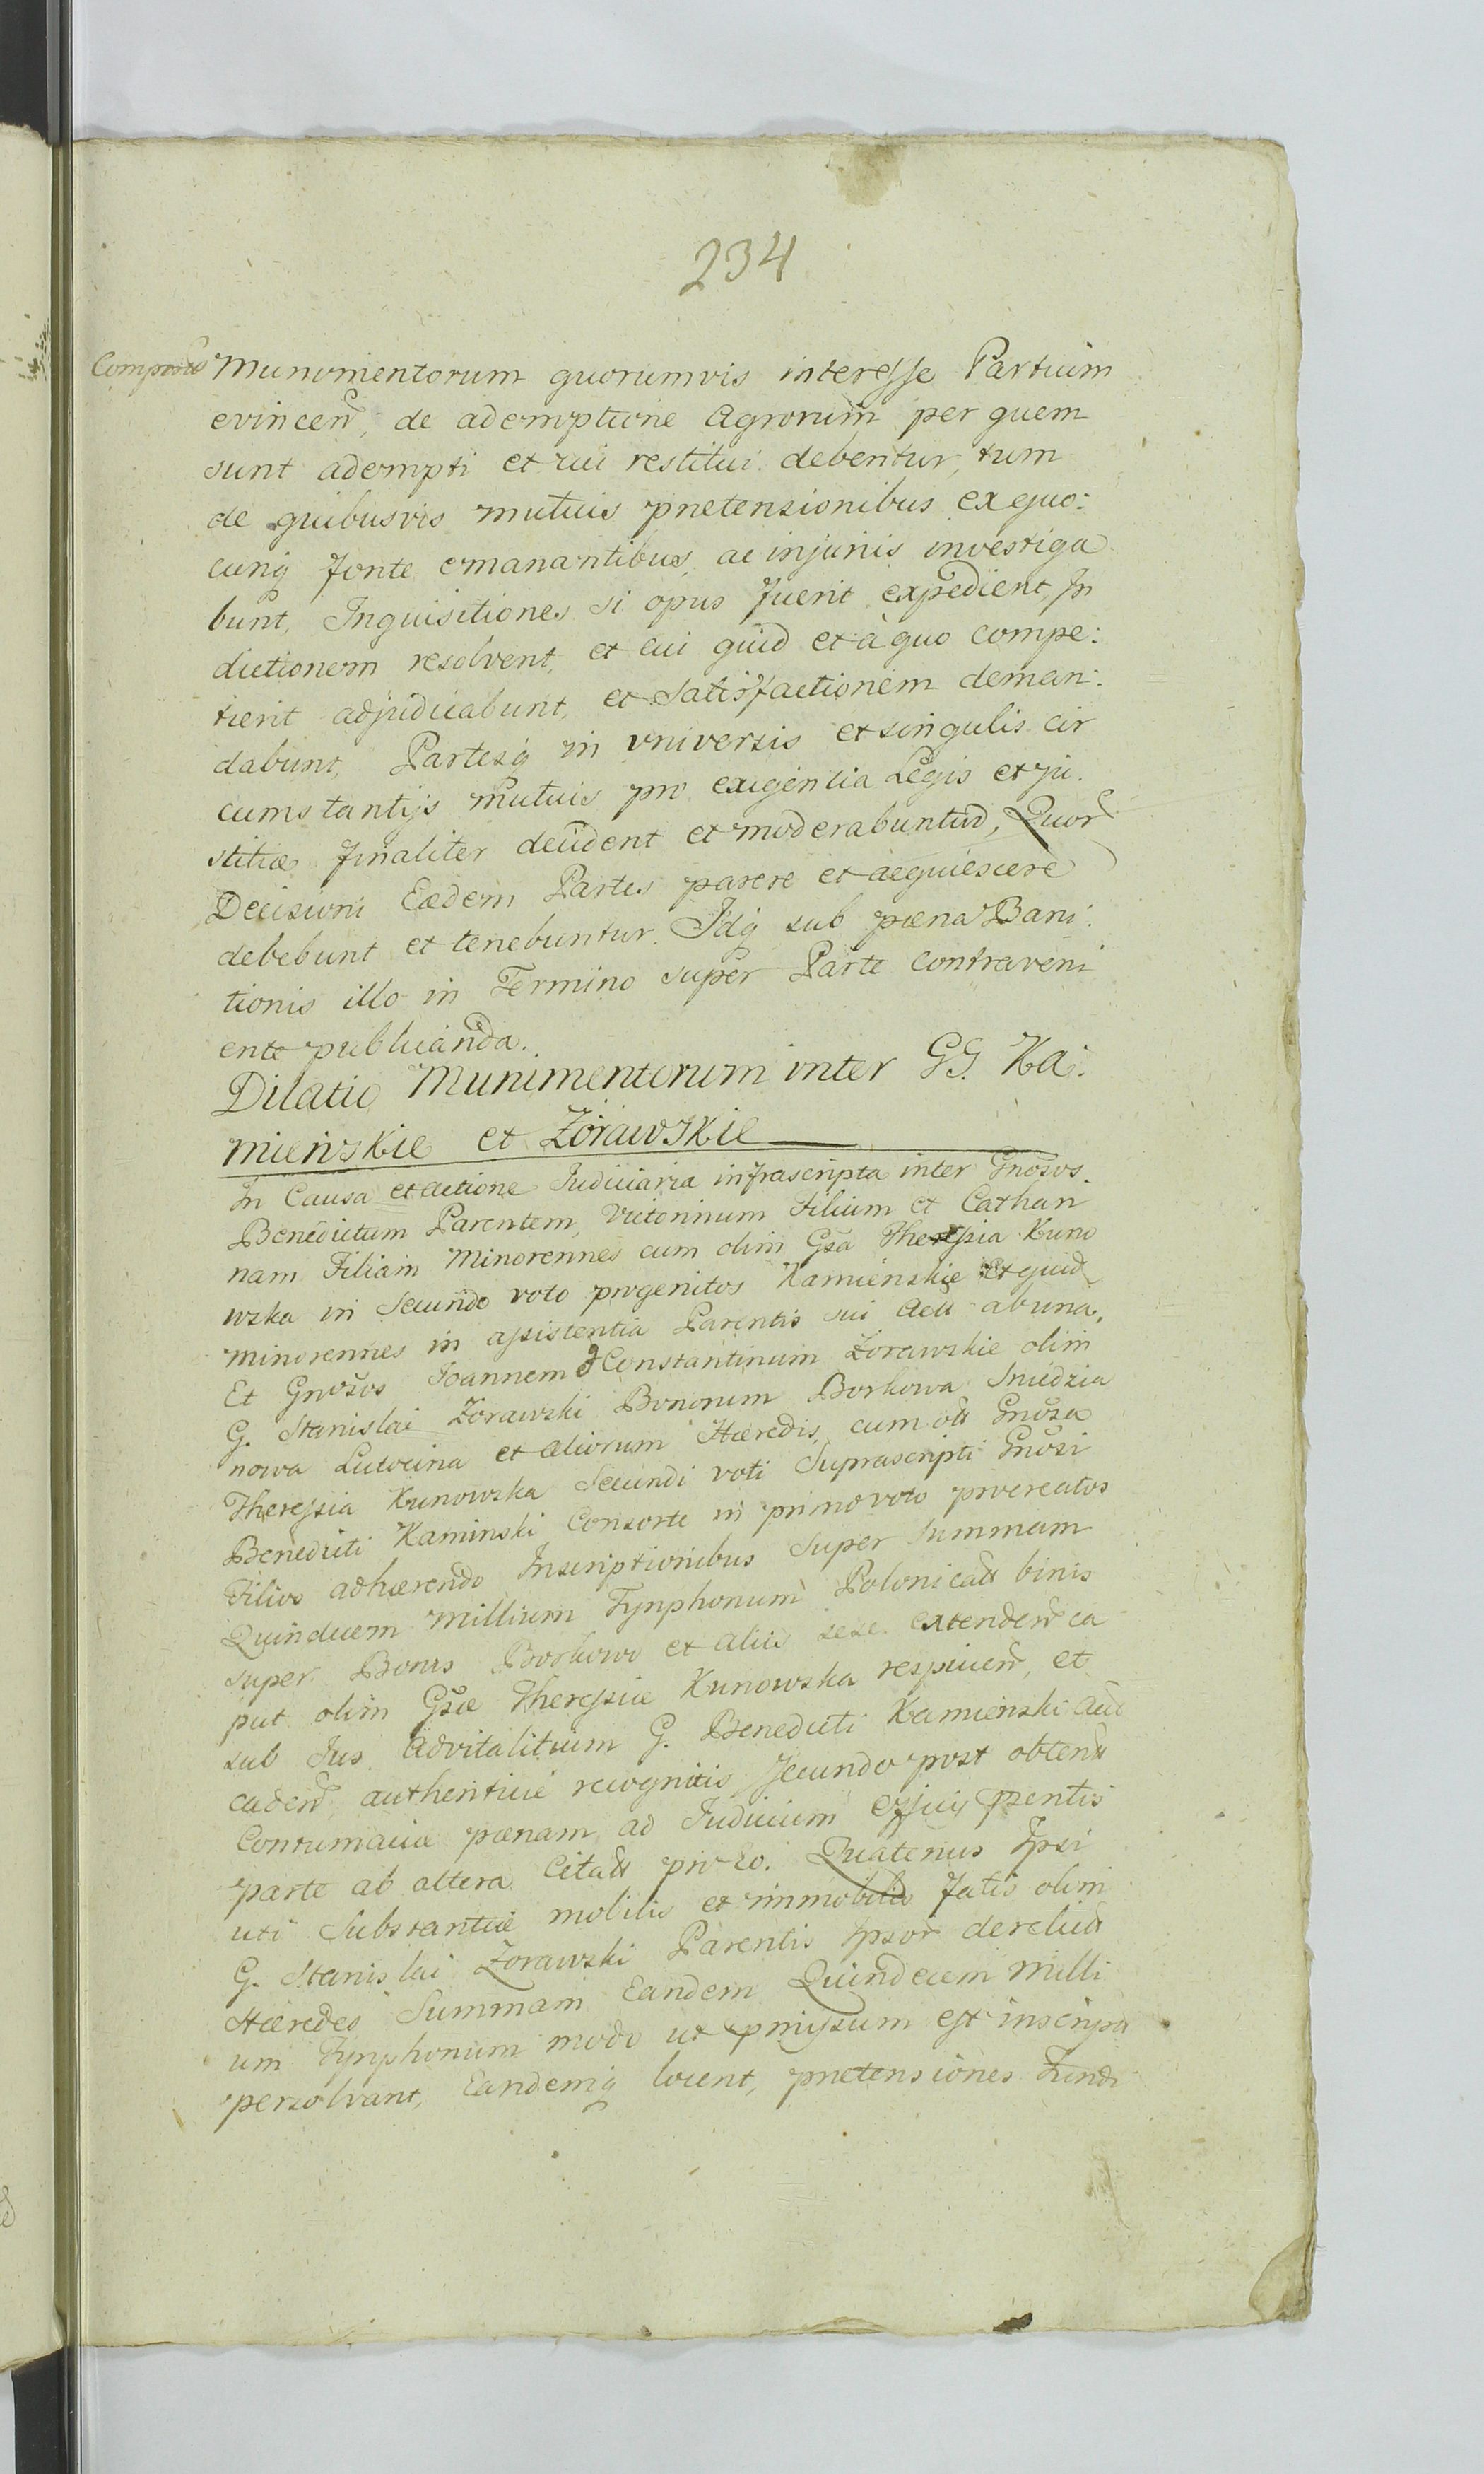 234
Munimentorum quorumvis interesse Partium
evincen̄, de ademptione Agrorum per quem
sunt adempti et cui restitui debentur, tum
de quibusvis mutuis prætensionibus ex quo:
cunq̃ fonte emanantibus, ac injuriis investiga
bunt, Inquisitiones si opus fuerit expedient, In
dictionem resolvent, et cui quid et à quo compe:
tierit adjudicabunt, et Satisfactionem deman:
dabunt, Partesq̃ in vniversis et singulis cir
cumstantijs mutuis pro exigentia Legis et ju.
stitiæ finaliter decident et moderabuntur, Quor̃
Decisioni Eædem Partes parere et acquiescere
debebunt et tenebuntur. Idq̃ sub pæna Bani:
tionis illo in Termino super Parte contraveni
ente publicanda.
Dilatio Munimentorum inter GG. Ka:
mieńskie et Zórawskie
In Causa et actione Judiciaria infrascripta inter Gnosos.
Benedictum Parentem, Victorinum Filium et Cathari
nam Filiam Minorennes cum olim Gsa Theressia Kuno
wska in Secundo voto progenitos Kamienskie et quid
minorennes in assistentia Parentis sui Act̃ ab una,
Et Gnosos Joannem Constantinum Zorawskie olim
G. Stanislai Zórawski Bonorum Borkowa Sniedzia
nowa Lutocina et aliorum Hæredis, cum olĩ Gnosa
Theressia Kunowska Secundi voti Suprascripti Gnosi
Benedicti Kaminski Consorte in primo voto procreatos
Filios adhærendo Inscriptionibus Super Summam
Quindecem Millium Tynphonum Polonicali binis
super Bonis Borkowo et aliis sese extenden̄ ca
put olim Gsæ Theressiæ Kunowska respicien̄, et
sub Jus Advitalitium G. Benedicti Kamienski Act̃
caden̄ authentice recognitis fecundo post obten̄t
Contumaciæ pænam ad Judicium Offıcij p̄sentis
parte ab altera Citat̃ pro Eo. Quatenus Ipsi
uti Substantiæ mobilis et immobilis fatis olim
G. Stanislai Zorawski Parentis Ipsor̃ derelict̃
Hæredes Summam Eandem Quindecem Milli
um Tynphonum modo ut p̄missum est inscript̃
persolvant, Eandemq̃ locent, prætensiones Fundi